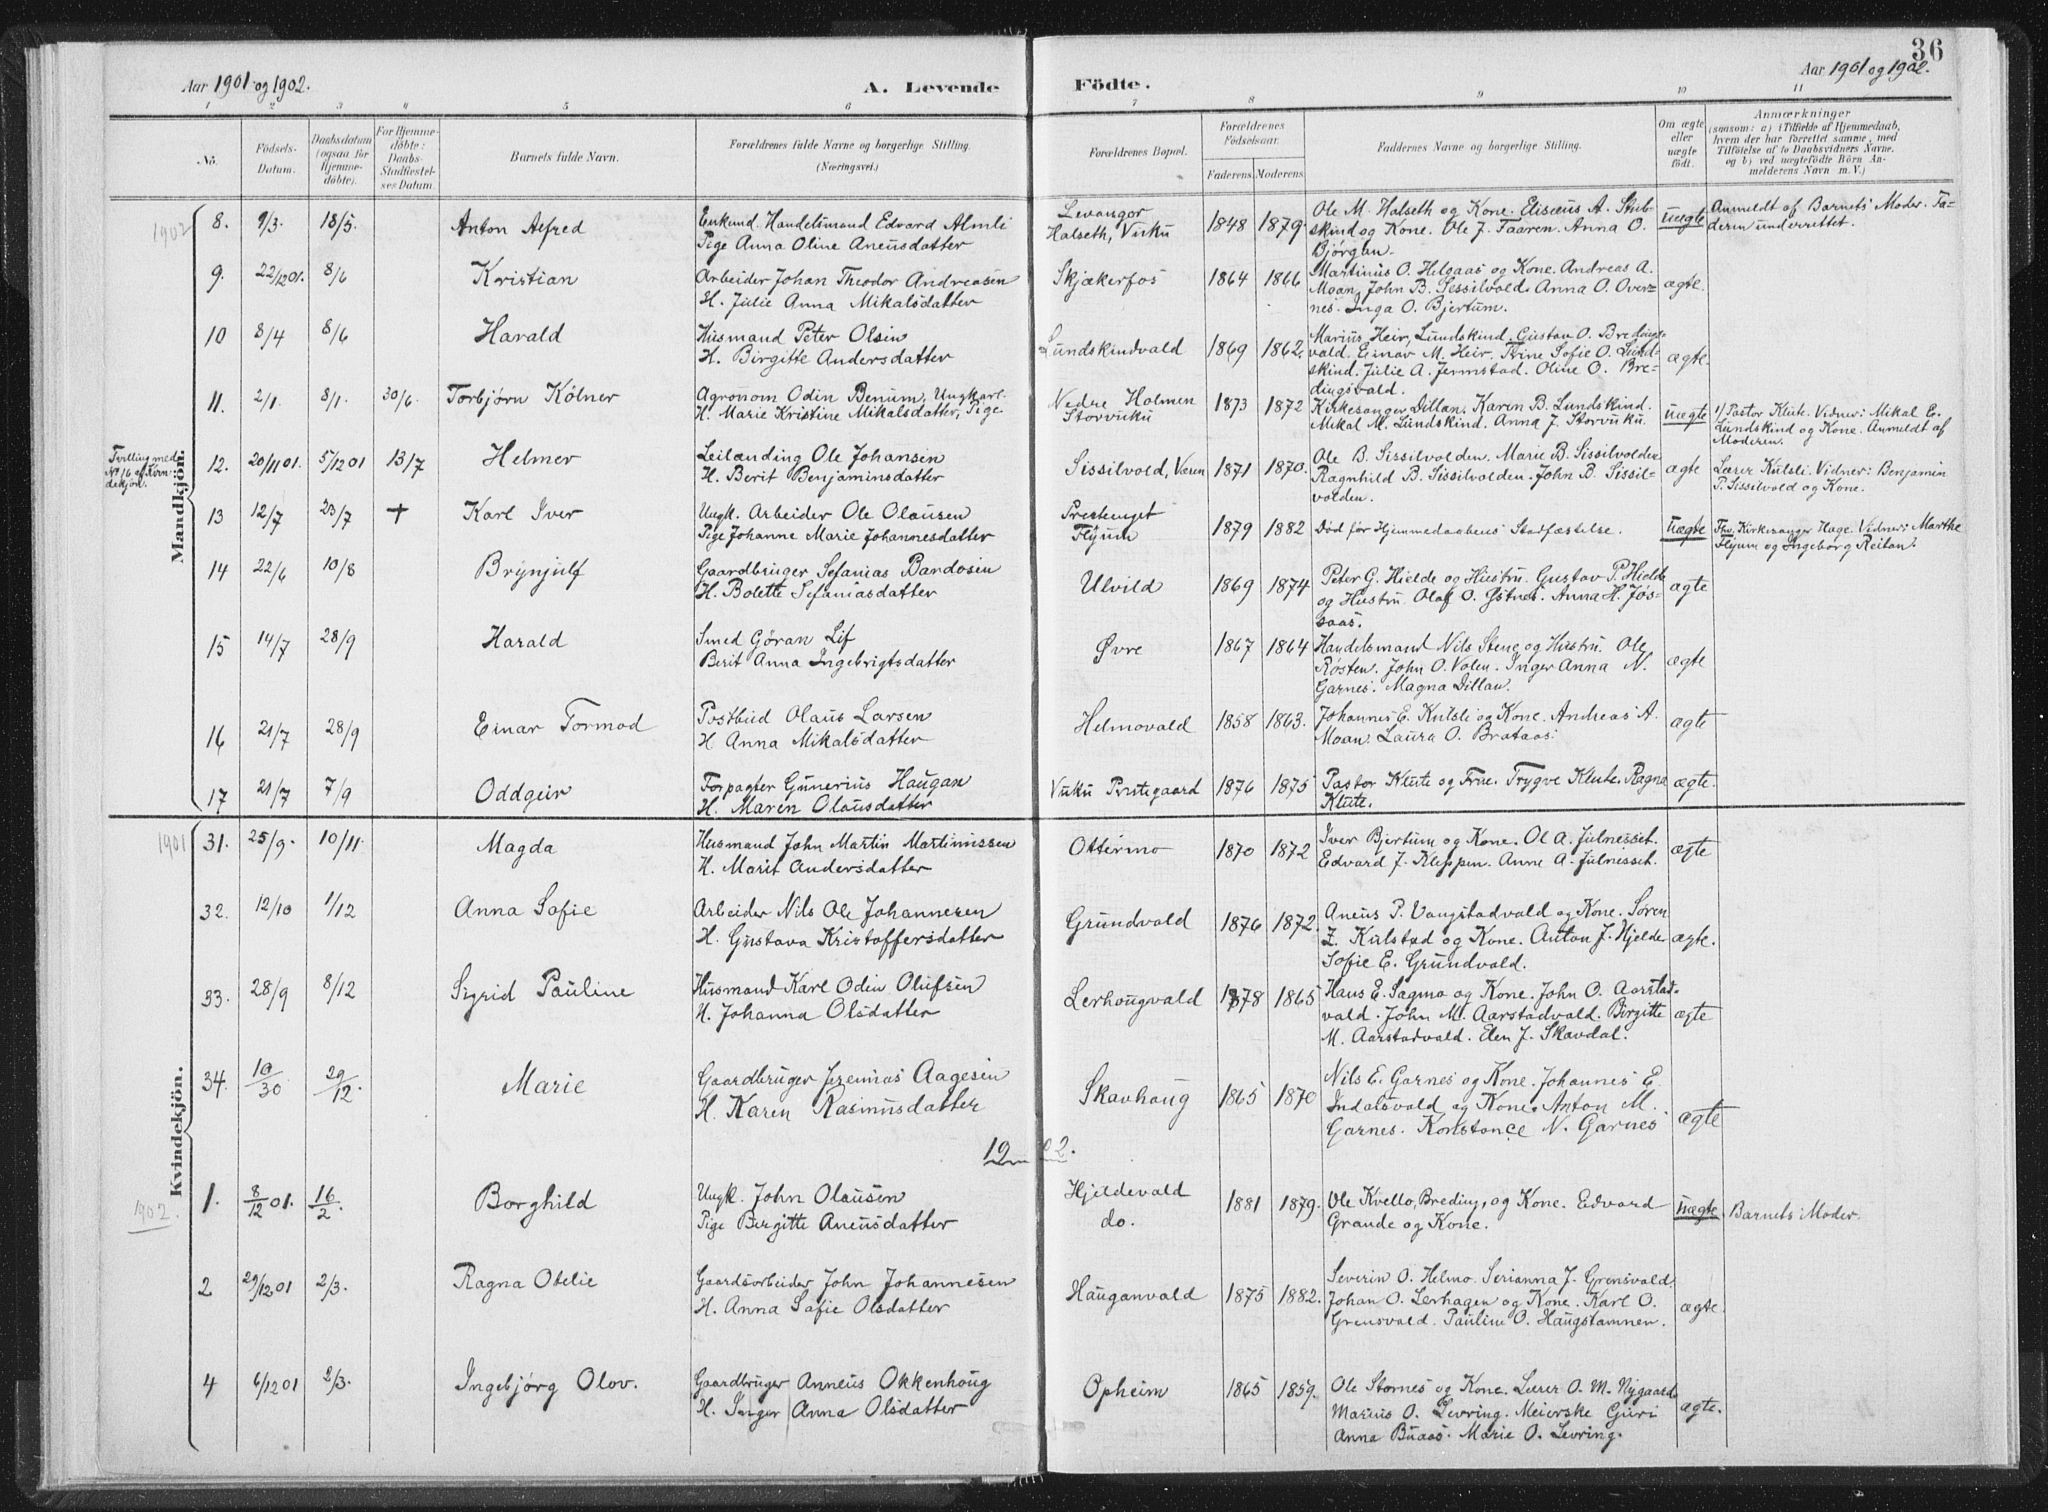 36
Aar 1901 og 1902.
A. Levende Födte.
Aar 1901 og 1902.
1 2 3 4 5 6 7 8 9 10 11
No.
Födsels-
Datum.
Daabsdatum
(ogsaa for
Hjemme-
döbte).
For Hjemme-
döbte:
Daabs-
Stadfæstel-
ses Datum.
Barnets fulde Navn.
Forældrenes fulde Navne og borgerlige Stilling.
(Næringsvei.)
Forældrenes Bopæl.
Forældrenes
Födselsaar.
Faderens. Moderens.
Faddernes Navne og borgerlige Stilling.
Om ægte
eller
uægte
födt.
Anmærkninger
(saasom: a) i Tilfælde af Hjemmedaab,
hvem der har forrettet samme, med
Tilföielse af to Daabsvidners Navne.
og b) ved uægtefödte Börn An-
melderens Navn m. V.)
Mandkjön.
1902
8. 9/3. 18/5. Anton Alfred
Enkemd. Handelsmand Edvard Almli
Pige Anna Oline Aneusdatter
Levanger
Halseth, Vuku
1848 1879.
Ole M. Halseth og Kone. Eliseus A. Stub-
skind og Kone. Ole J. Faaren. Anna O.
Bjørgan.
uægte
Anmeldt af Barnets Moder. Fa-
deren underrettet.
9. 22/12 01. 8/6 Kristian
Arbeider Johan Theodor Andreasen
H. Julie Anna Mikalsdatter
Skjækerfos
1864 1866
Martinus O. Helgaas og Kone. Andreas A.
Moan, John B. Sessilvold. Anna O. Over-
nes. Inga O. Bjertum.
ægte.
10 8/4 8/6 Harald
Husmand Peter Olsen
H. Birgitte Andersdatter
Lundskindvald
1869 1862.
Marius Heir, Lundskind. Gustav O. Bredings-
vald. Einar M. Heir. Trine Sofie O. Lund-
skind. Julie A. Jermstad. Oline O. Bre-
dingsvald.
ægte.
11. 2/1. 8/1. 30/6. Torbjørn Kölner
Agronom Odin Benum, Ungkarl.
H. Marie Kristine Mikalsdatter, Pige
Nedre Holmen
Storvuku
1873 1872
Kirkesanger Dillan. Karen B. Lundskind.
Mikal M. Lundskind. Anna J. Storvuku.
uægte
1/ Pastor Klute. Vidner: Mikal E.
Lundskind og Kone. Anmeldt af
Moderen.
Tvilling med
No 16 af Kvin-
dekjøn.
12. 20/11 01. 5/12 01 13/7 Helmer
Leilænding Ole Johansen
H. Berit Benjaminsdatter
Sissilvold, Væren
1871 1870.
Ole B. Sissilvolden. Marie B. Sissilvolden
Ragnhild B. Sissilvolden. John B. Sissil-
volden.
ægte
Lærer Kulsli. Vidner: Benjamin
P. Sissilvold og Kone.
13 12/7 23/7 + Karl Iver
Ungk. Arbeider Ole Olausen
Pige Johanne Marie Johannesdatter
Flyum
1879 1882
Død før Hjemmedaabens Stadfæstelse.
uægte
Fhv. Kirkesanger Hage. Vidner: Marthe
Flyum og Ingeborg Reitan.
14 22/6 10/8 Brynjulf
Gaardbruger Sefanias Bardosen
H. Bolette Sefaniasdatter
Ulvild
1869 1874
Peter G. Hjelde og Hustru. Gustav P. Hjelde
og Hustru. Olaf O. Østnes. Anna H. Jøs-
saas.
ægte
15 14/7 28/9 Harald
Smed Gøran Lif
Berit Anna Ingebrigtsdatter
Øvre
1867 1864
Handelsmand Nils Stene og Hustru. Ole
Røsten. John O. Volen. Inger Anna N.
Garnes. Magna Dillan.
ægte
16 21/7 28/9 Einar Tormod
Postbud Olaus Larsen
H. Anna Mikalsdatter
Helmovald
1858 1863.
Johannes E. Kulsli og Kone. Andreas A.
Moan. Laura O. Brataas.
ægte
17 21/7 7/9 Oddgeir
Forpagter Gunerius Haugan
H. Maren Olausdatter
Vuku Prestegaard
1876 1875
Pastor Klute og Frue. Trygve Klute. Ragna
Klute.
ægte.
Kvindekjön.
1901
31. 25/9. 10/11. Magda
Husmand John Martin Martinussen
H. Marit Andersdatter
Ottermo
1870 1872
Iver Bjertum og Kone. Ol A. Julnesset.
Edvard J. Kleppen. Anne A. Julnesset.
ægte
32. 12/10 1/12 Anna Sofie
Arbeider Nils Ole Johannesen
H. Gustava Kristoffersdatter
Grundvald
1876 1872.
Aneus P. Vangstadvald og Kone. Søren
Z. Kulstad og Kone. Anton J. Hjelde
Sofie E. Grundvald.
ægte.
33. 28/9 8/12 Sigrid Pauline
Husmand Karl Odin Olufsen
H. Johanna Olsdatter
Lerhougvald
1878 1865
Hans E. Sagmo og Kone. John O. Aarstad-
vald. John M. Aarstadvald. Birgitte
M. Aarstadvald. Elen J. Skavdal.
ægte
34. 10/30 29/12. Marie
Gaardbruger Jeremias Aagesen
H. Karen Rasmusdatter
Skavhaug
1865 1870
Nils E. Garnes og Kone. Johannes E.
Indalsvald og Kone. Anton M.
Garnes. Konstance N. Garnes
ægte
1902.
1902.
1. 8/12 01. 16/2. Borghild
Ungk. John Olausen
Pige Bergitte Aneusdatter
Hjeldevald
do.
1881 1879.
Ole Kvello, Breding, og Kone. Edvard
Grande og Kone.
uægte
Barnets Moder.
2 29/12 01 2/3. Ragna Otelie
Gaardsarbeider John Johannesen
H. Anna Sofie Olsdatter
Hauganvald
1875 1882.
Severin O. Helmo. Serianna J. Grensvald
Johan O. Lerhagen og Kone. Karl O.
Grensvald. Pauline O. Haugstamnen.
ægte.
4 6/12 01 2/3. Ingebjørg Olov.
Gaardbruger Anneus Okkenhoug
H. Inger Anna Olsdatter
Opheim
1865 1859.
Ole Stornes og Kone. Lærer O. M. Nygaard
Marius O. Levring. Meierske Guri
Anna Buaas. Marie O. Levring.
ægte.